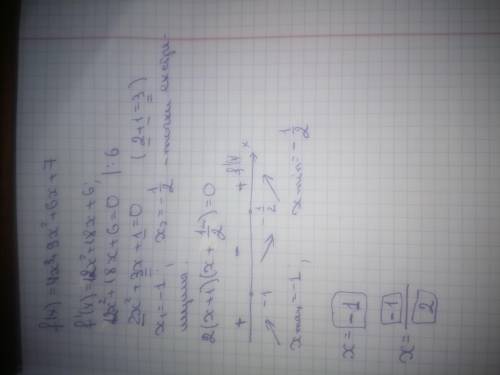 f(x)=4x³+9x²+6x+7
f'(x)=12x²+18x+6;
12x²+18x+6=0 |:6
2x²+3x+1=0 (2+1=3)
x₁=-1; x₂=-1/2 - точки екстре-
мума.
2(x+1)(x+1/2)=0
+ - + f'(x)
-1 -1/2 x
x max=-1; x min=-1/2
x=-1
x=-1/2